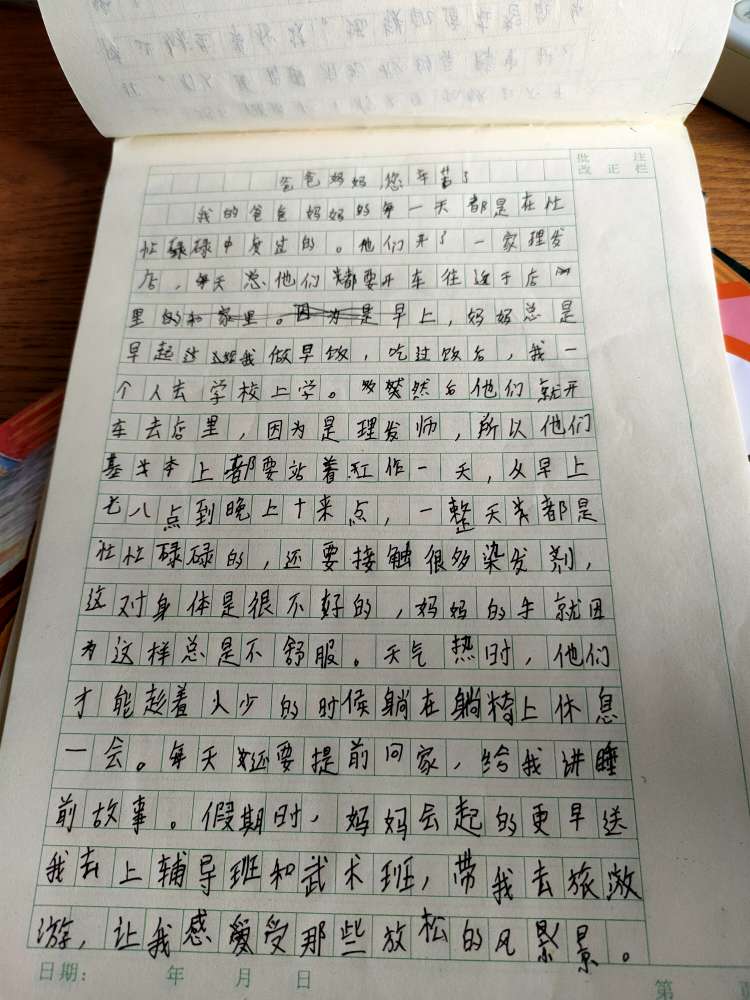 批注
改正栏
爸爸妈妈,您辛苦了
我的爸爸妈妈的每一天都是在忙
忙碌碌中度过的。他们开了一家理发
店，每天总他们都要开车往返于店
里的和家里。因为是早上，妈妈总是
早起给我做早饭，吃过饭后，我一
个人去学校上学。然后他们就开
车去店里，因为是理发师，所以他们
基本上都要站着工作一天，从早上
七八点到晚上十来点，一整天都是
忙忙碌碌的，还要接触很多染发剂，
这对身体是很不好的，妈妈的手就因
为这样总是不舒服。天气热时，他们
才能趁着人少的时候躺在躺椅上休息
一会。每天还要提前回家，给我讲睡
前故事。假期时，妈妈会起的更早送
我去上辅导班和武术班，带我去旅
游，让我感受那些放松的风景。
日期： 年 月 日
第 页